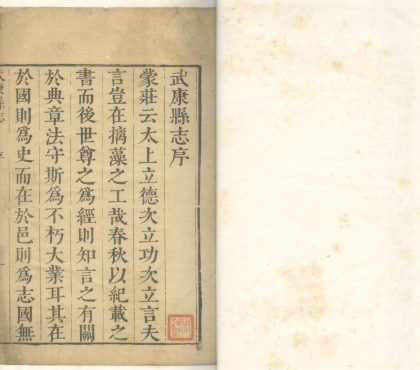 武康縣志序
蒙莊云太上立德次立功次立言夫
言豈在摛藻之工哉春秋以紀載之
書而後世尊之為經則知言之有關
於典章法守斯為不朽大業耳其在
於國則為史而在於邑則為志國無
武康縣志 序